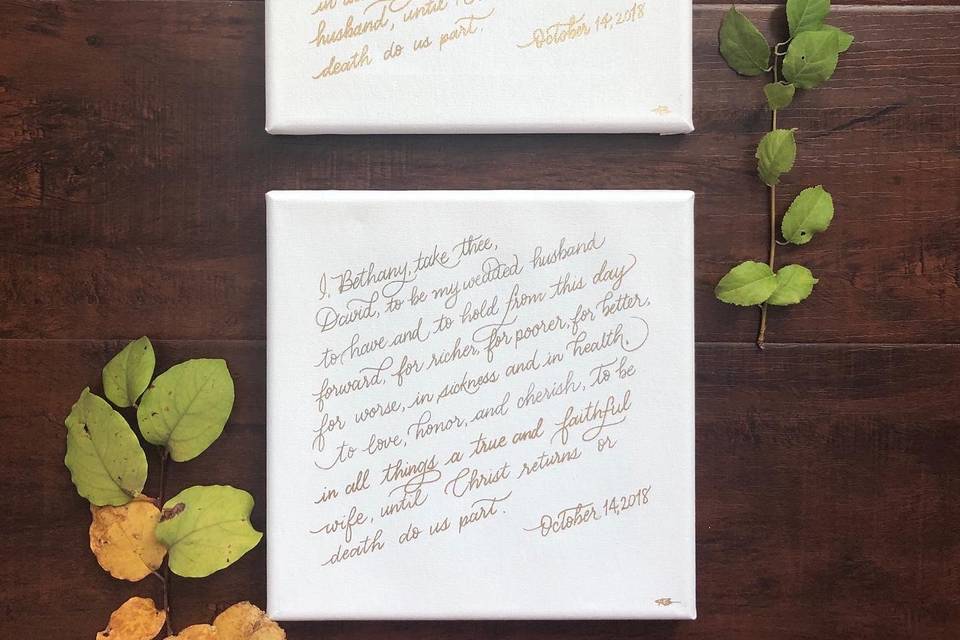 husband, until
death do us part.
October 14, 2018
I, Bethany, take thee,
David, to be my wedded husband
to have and to hold from this day
forward, for richer, for poorer, for better,
for worse, in sickness and in health,
to love, honor, and cherish, to be
in all things a true and faithful
wife, until Christ returns or
death do us part.
October 14, 2018